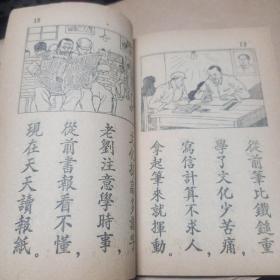 12
從前筆比鐵鎚重，
學了文化少苦痛，
寫信計算不求人，
拿起筆來就揮動。
13
老劉注意學時事，
從前書報看不懂，
現在天天讀報紙。